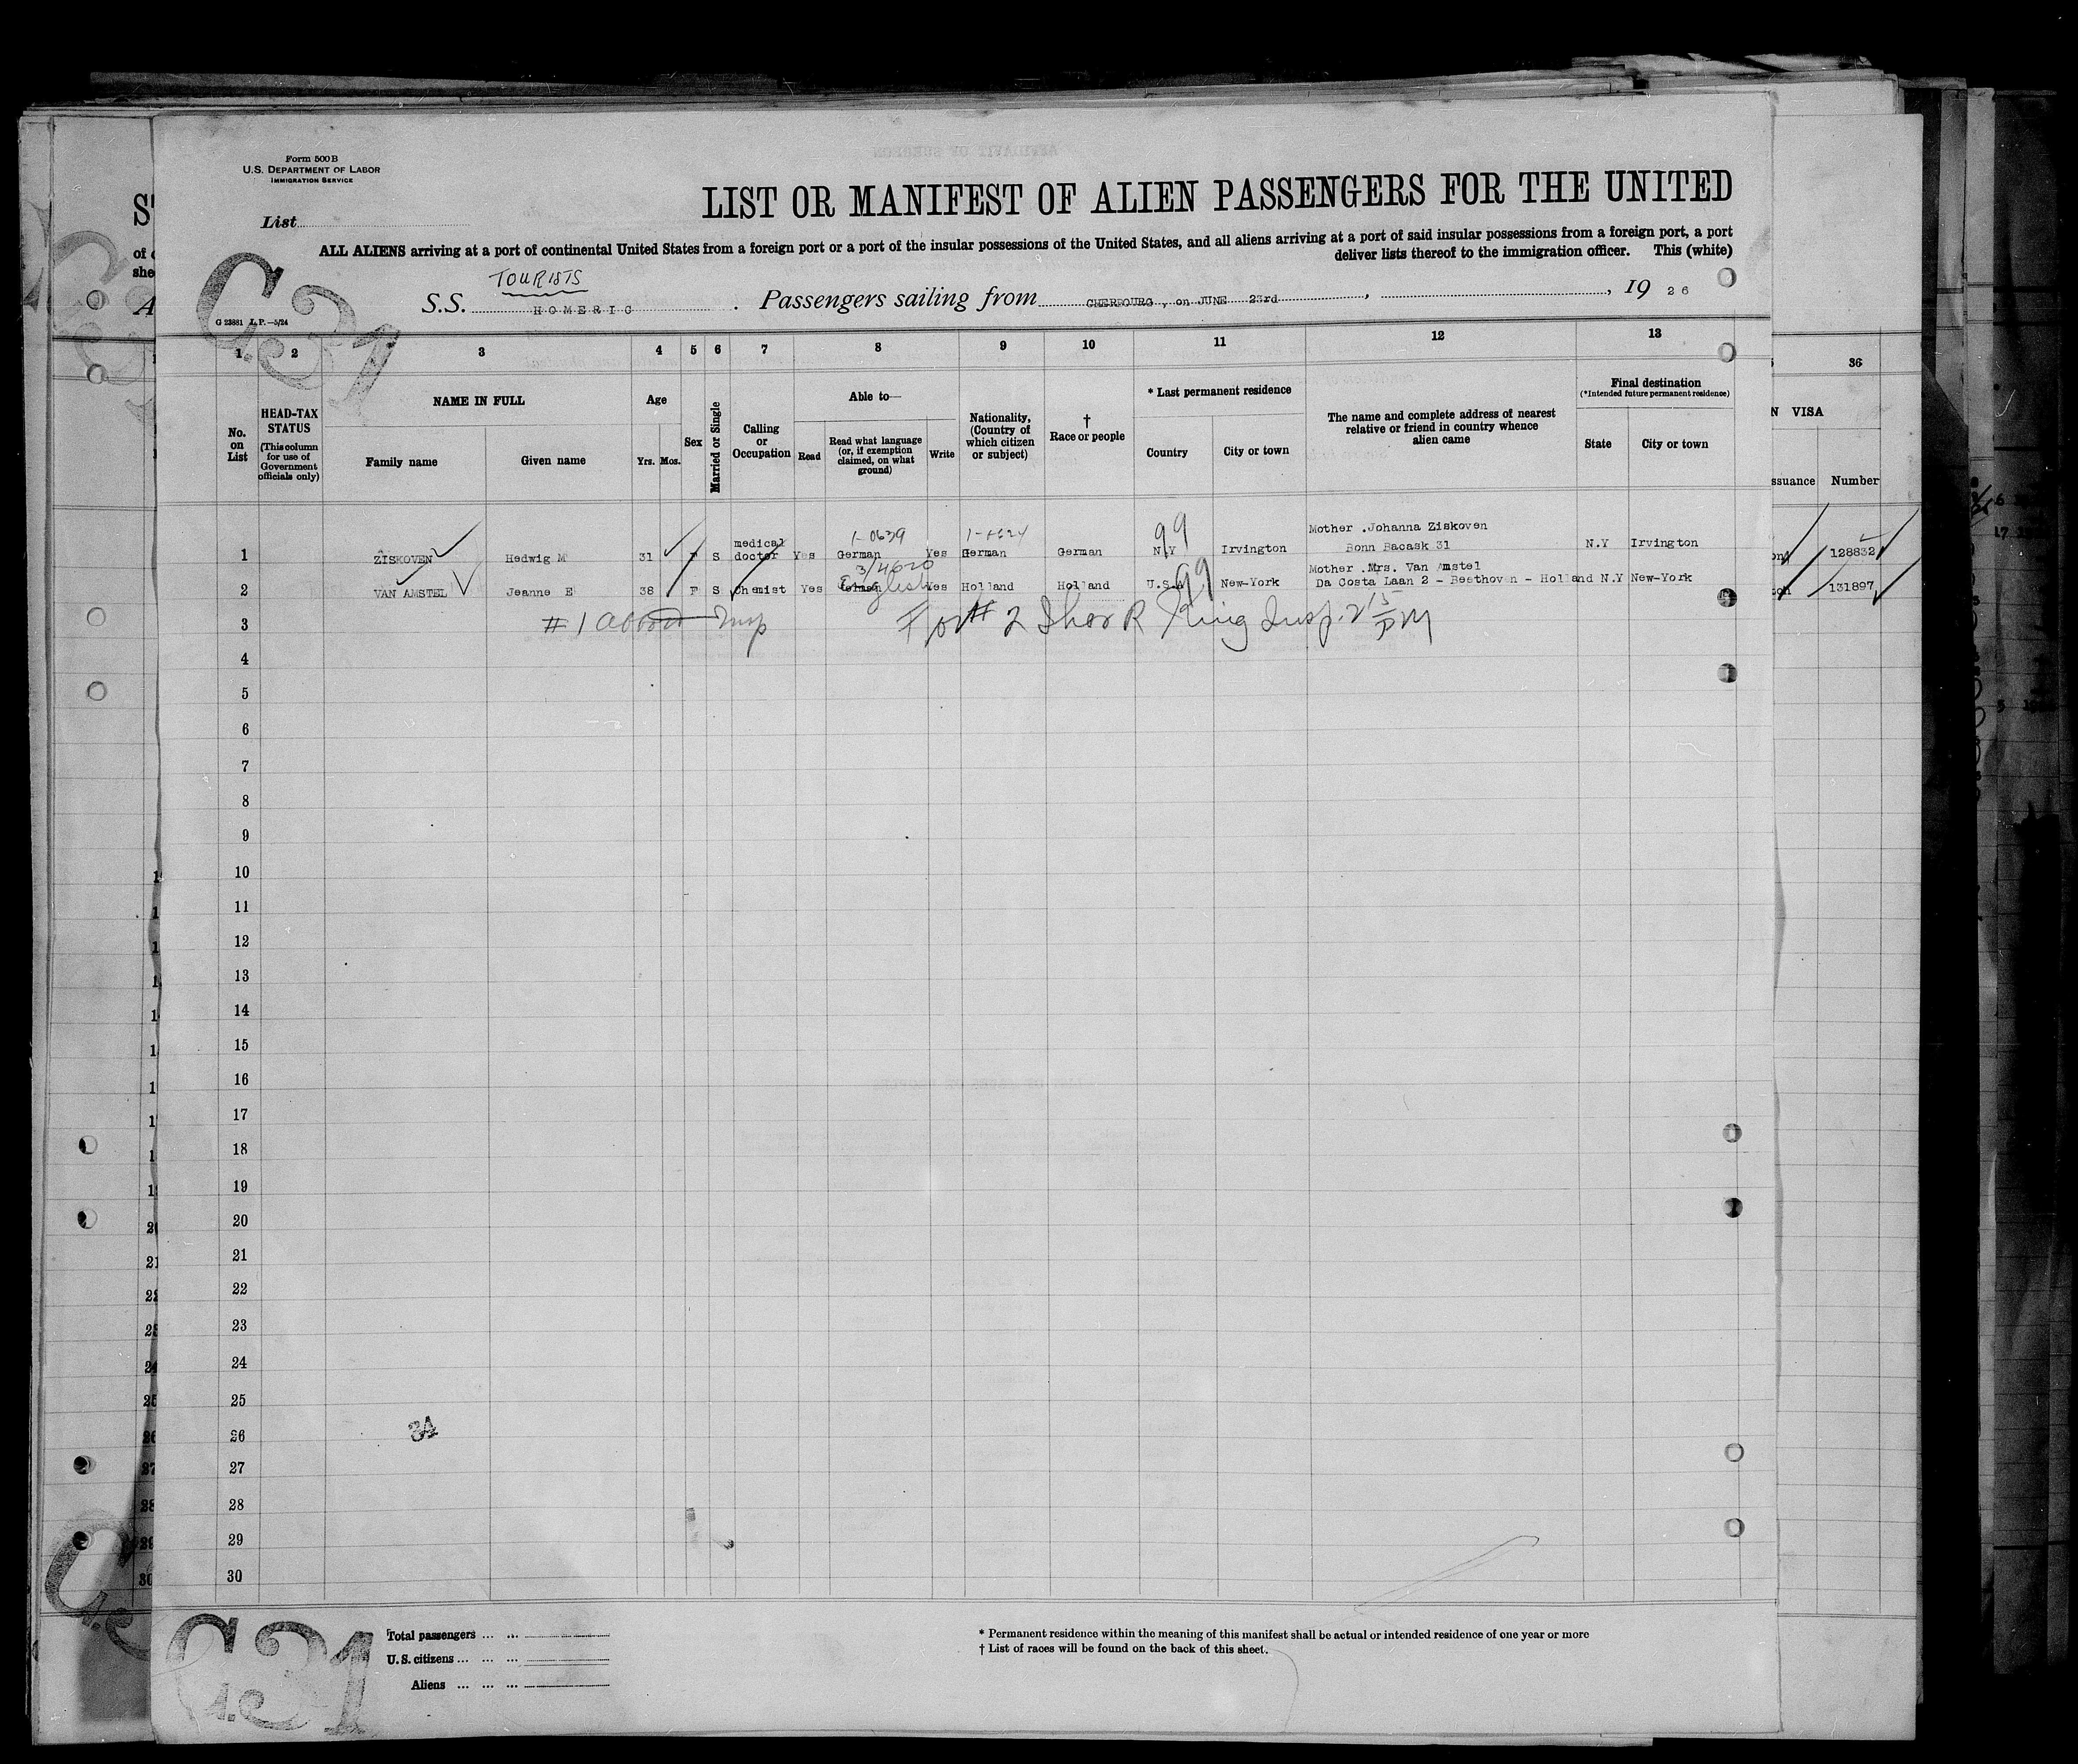 Form 500 B
U.S. DEPARTMENT OF LABOR
IMMIGRATION SERVICE
LIST OR MANIFEST OF ALIEN PASSENGERS FOR THE UNITED
List
ALL ALIENS arriving at a port of continental United States from a foreign port or a port of the insular possessions of the United States, and all aliens arriving at a port of said insular possessions from a foreign port, a port
deliver lists thereof to the immigration officer. This (white)
TOURISTS
S.S. HOMERIC . Passengers sailing from CHERBOURG , on JUNE 23rd , , 19 26
G 23881 L.P.—5/24
C31
1 2 3 4 5 6 7 8 9 10 11 12 13 36
No. on List
HEAD-TAX STATUS
(This column for use of Government officials only)
NAME IN FULL
Family name Given name
Age
Yrs. Mos.
Sex
Married or Single
Calling or Occupation
Able to—
Read
Read what language (or, if exemption claimed, on what ground)
Write
Nationality, (Country of which citizen or subject)
† Race or people
* Last permanent residence
Country City or town
The name and complete address of nearest relative or friend in country whence alien came
Final destination
(*Intended future permanent residence)
State City or town
N VISA
ssuance Number
1-0639 99 Mother . Johanna Ziskoven
1 ZISKOVEN Hedwig M 31 F S medical doctor Yes German Yes German German N.Y Irvington Bonn Bacask 31 N.Y Irvington 128832
3/4620 99 Mother .Mrs. Van Amstel
2 VAN AMSTEL Jeanne E 38 F S Chemist Yes English Yes Holland Holland U.S.A New-York Da Costa Laan 2 - Beethoven - Holland N.Y New-York 131897
3 #1 For #2 King Insp. 2 15 PM
4
5
6
7
8
9
10
11
12
13
14
15
16
17
18
19
20
21
22
23
24
25
34
26
27
28
29
30
C31
Total passengers ... ...
U.S. citizens ... ... ...
Aliens ... ... ...
* Permanent residence within the meaning of this manifest shall be actual or intended residence of one year or more
† List of races will be found on the back of this sheet.